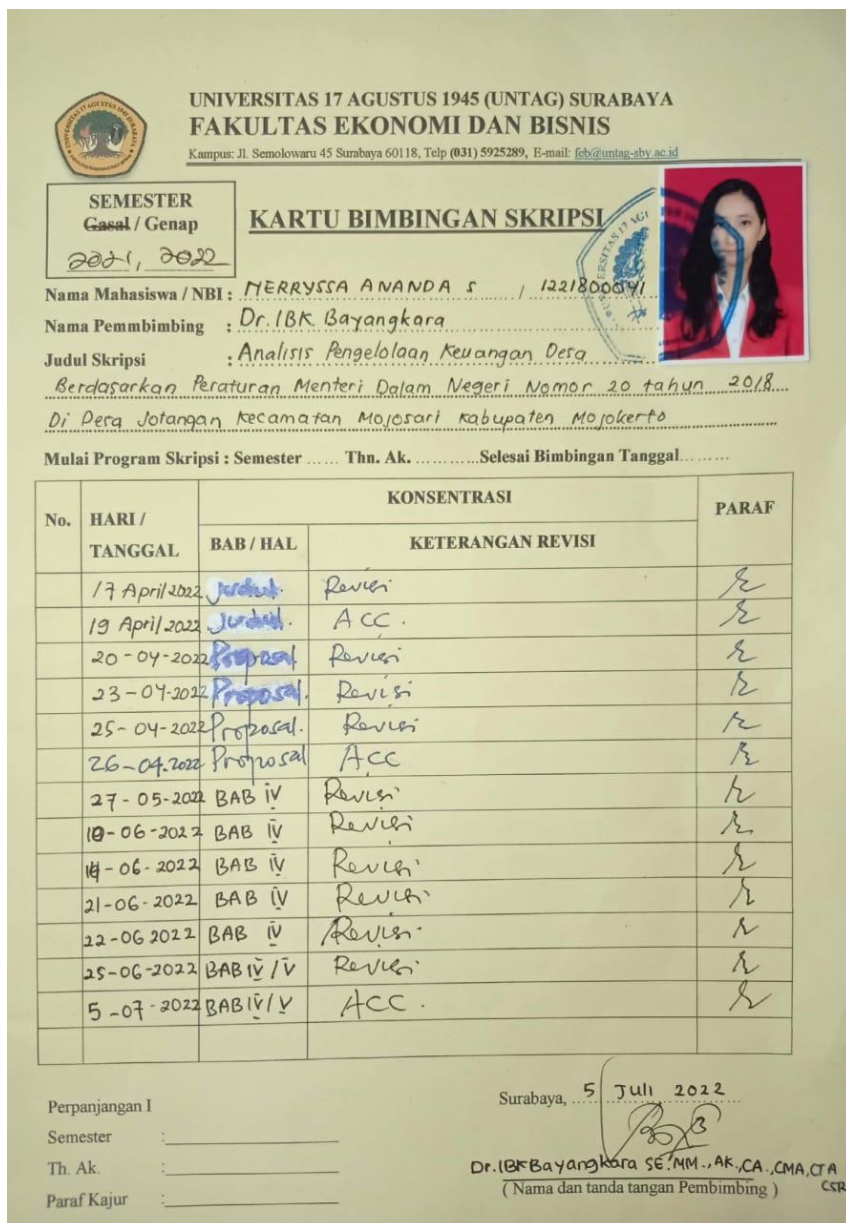 UNIVERSITAS 17 AGUSTUS 1945 (UNTAG) SURABAYA
FAKULTAS EKONOMI DAN BISNIS
Kampus: Jl. Semolowaru 45 Surabaya 60118, Telp (031) 5925289, E-mail: feb@untag-sby.ac.id
SEMESTER
Gasal / Genap
2021, 2022
KARTU BIMBINGAN SKRIPSI
Nama Mahasiswa / NBI : MERRYSSA ANANDA S / 1221800041
Nama Pemmbimbing : Dr. IBK. Bayangkara
Judul Skripsi : Analisis Pengelolaan Keuangan Desa
Berdasarkan Peraturan Menteri Dalam Negeri Nomor 20 tahun 2018
Di Desa Jotangan Kecamatan Mojosari Kabupaten Mojokerto
Mulai Program Skripsi : Semester ...... Thn. Ak. ............Selesai Bimbingan Tanggal.........
No. HARI / TANGGAL BAB / HAL KONSENTRASI KETERANGAN REVISI PARAF
17 April 2022 Revisi
19 April 2022 ACC.
20-04-2022 Proposal Revisi
23-04-2022 Proposal. Revisi
25-04-2022 Proposal. Revisi
26-04.2022 Proposal ACC
27-05-2022 BAB IV Revisi
10-06-2022 BAB IV Revisi
-06-2022 BAB IV Revisi
21-06-2022 BAB IV Revisi
22-06 2022 BAB IV Revisi
25-06-2022 BAB IV / V Revisi
5-07-2022 BAB IV / V ACC.
Perpanjangan I
Semester :
Th. Ak. :
Paraf Kajur :
Surabaya, 5 Juli 2022
Dr. IBK Bayangkara SE. MM., AK., CA., CMA, CTA
CSR
( Nama dan tanda tangan Pembimbing )